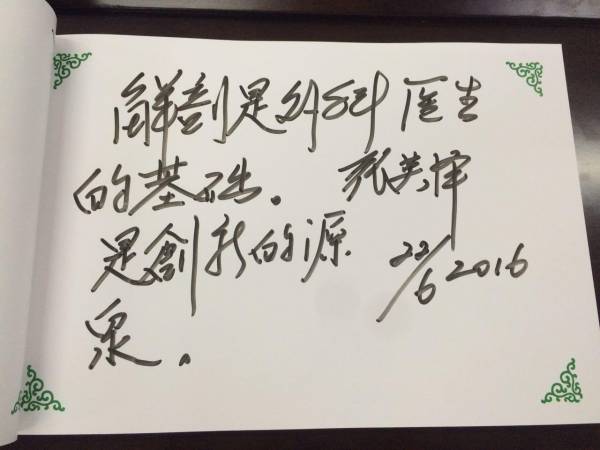 解剖是外科医生
的基础。
是創新的源
泉。
张英泽
22/6 2016